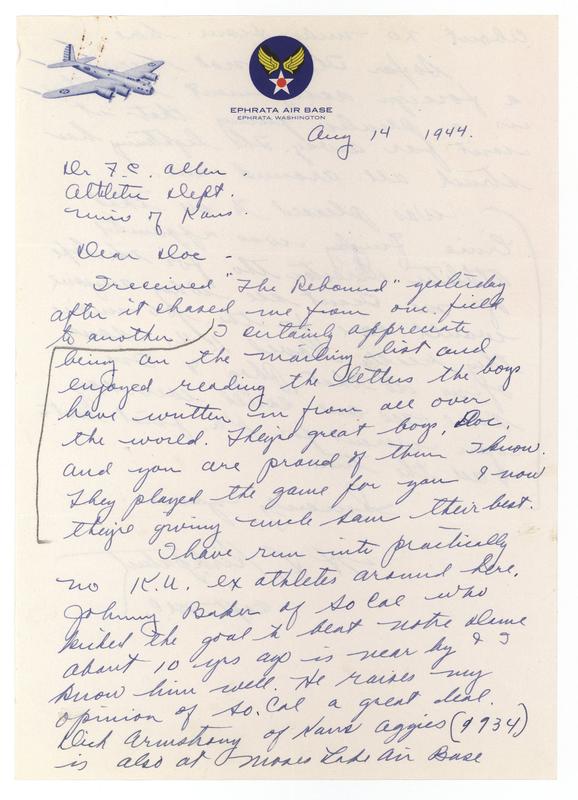 EPHRATA AIR BASE
EPHRATA, WASHINGTON
Aug 14 1944.
Dr F.C. Allen.
Athletic Dept.
Univ of Kans.
Dear Doc -
I received "The Rebound" yesterday
after it chased me from one field
to another. I certainly appreciate
being on the mailing list and
enjoyed reading the letters the boys
have written in from all over
the world. They're great boys, Doc,
and you are proud of them I know.
They played the game for you & now
they're giving uncle Sam their best.
I have run into practically
no K.U. ex athletes around here.
Johnny Baker of So Cal who
kicked the goal to beat Notre Dame
about 10 yrs ago is near by & I
know him well. He raises my
opinion of So. Cal a great deal.
Dick Armstrong of Kans Aggies (1934)
is also at Moses Lake Air Base